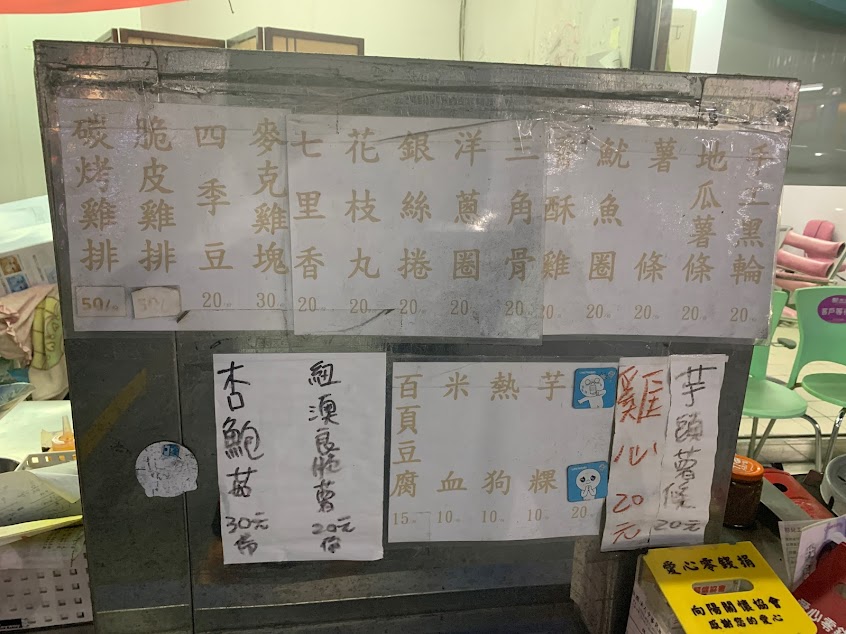 手工黑輪 20
地瓜薯條 20
薯條 20
魷魚圈 20
酥雞 20
三角骨 20
洋蔥圈 20
銀絲捲 20
花枝丸 20
七里香 20
麥克雞塊 30
四季豆 20
脆皮雞排
碳烤雞排 50/
芋頭薯條 20元
雞心 20元
20
芋粿 10
熱狗 10
米血 10
百頁豆腐 15
紐澳良脆薯 20元份
杏鮑菇 30元份
愛心零錢捐
向陽關懷協會
感謝您的愛心